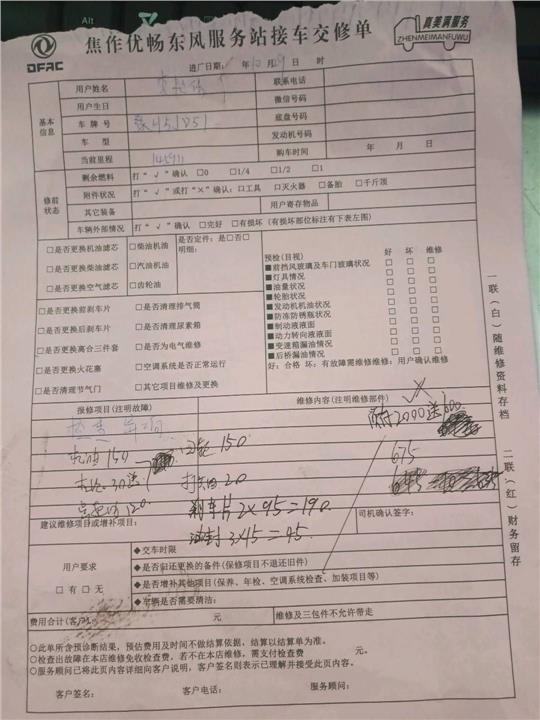 DFAC
焦作优畅东风服务站接车交修单
真美满服务
ZHENMEIMANFUWU
进厂日期: 年 10 月 9 日 时
基本信息
用户姓名
联系电话
用户生日
微信号码
车牌号
底盘号
车型
发动机号码
当前里程
购车时间 年 月 日
修前状态
剩余燃料 打“√”确认 □0 □1/4 □1/2 □1
附件状况 打“√”或打“×”确认:□工具 □灭火器 □备胎 □千斤顶
其它装备
用户寄存物品
车辆外部情况 打“√”确认 □完好 □有损坏(有损坏部位标注有下表左图)
□是否更换机油滤芯 □柴油机油 是否定件:是□否□
明细:
□是否更换柴油滤芯 □汽油机油
□是否更换空气滤芯 □齿轮油
□是否更换前刹车片 □是否清理排气筒
□是否更换后刹车片 □是否清理尿素箱
□是否更换离合三件套 □是否为电气维修
□是否更换火花塞 □空调系统是否正常运行
□是否清理节气门 □其它项目维修及更换
预检(目视) 好 坏 维修
■前挡风玻璃及车门玻璃状况 □ □ □
■灯具情况 □ □ □
■油量状况 □ □ □
■轮胎状况 □ □ □
■发动机机油状况 □ □ □
■防冻防锈瓶状况 □ □ □
■制动液液面 □ □ □
■动力转向液液面 □ □ □
■变速箱漏油情况 □ □ □
■后桥漏油情况 □ □ □
好:合格 坏:有故障需维修维修:用户确认维修
报修项目(注明故障)
维修内容(注明维修部件)
2000送
150
150
675
20
120
刹车片2×95=190
油封3×15=45
建议维修项目或增补项目:
司机确认签字:
用户要求
□有 □无
◆交车时限
◆是否归还更换的备件(保修项目不退还旧件)
◆是否增补其他项目(保养、年检、空调系统检查、加装项目等)
◆车辆是否需要清洁:
费用合计(客户): 元
维修及三包件不允许带走
○此单所含预诊断结果,预估费用及时间不做结算依据,结算以结算单为准。
○检查出故障在本店维修免收检查费,若不在本店维修,需支付检查费 元。
○服务顾问已将此页内容详细向客户说明,客户签名则表示已理解并接受此页内容。
客户签名: 客户电话: 服务顾问:
一联(白)随维修资料存档
二联(红)财务留存